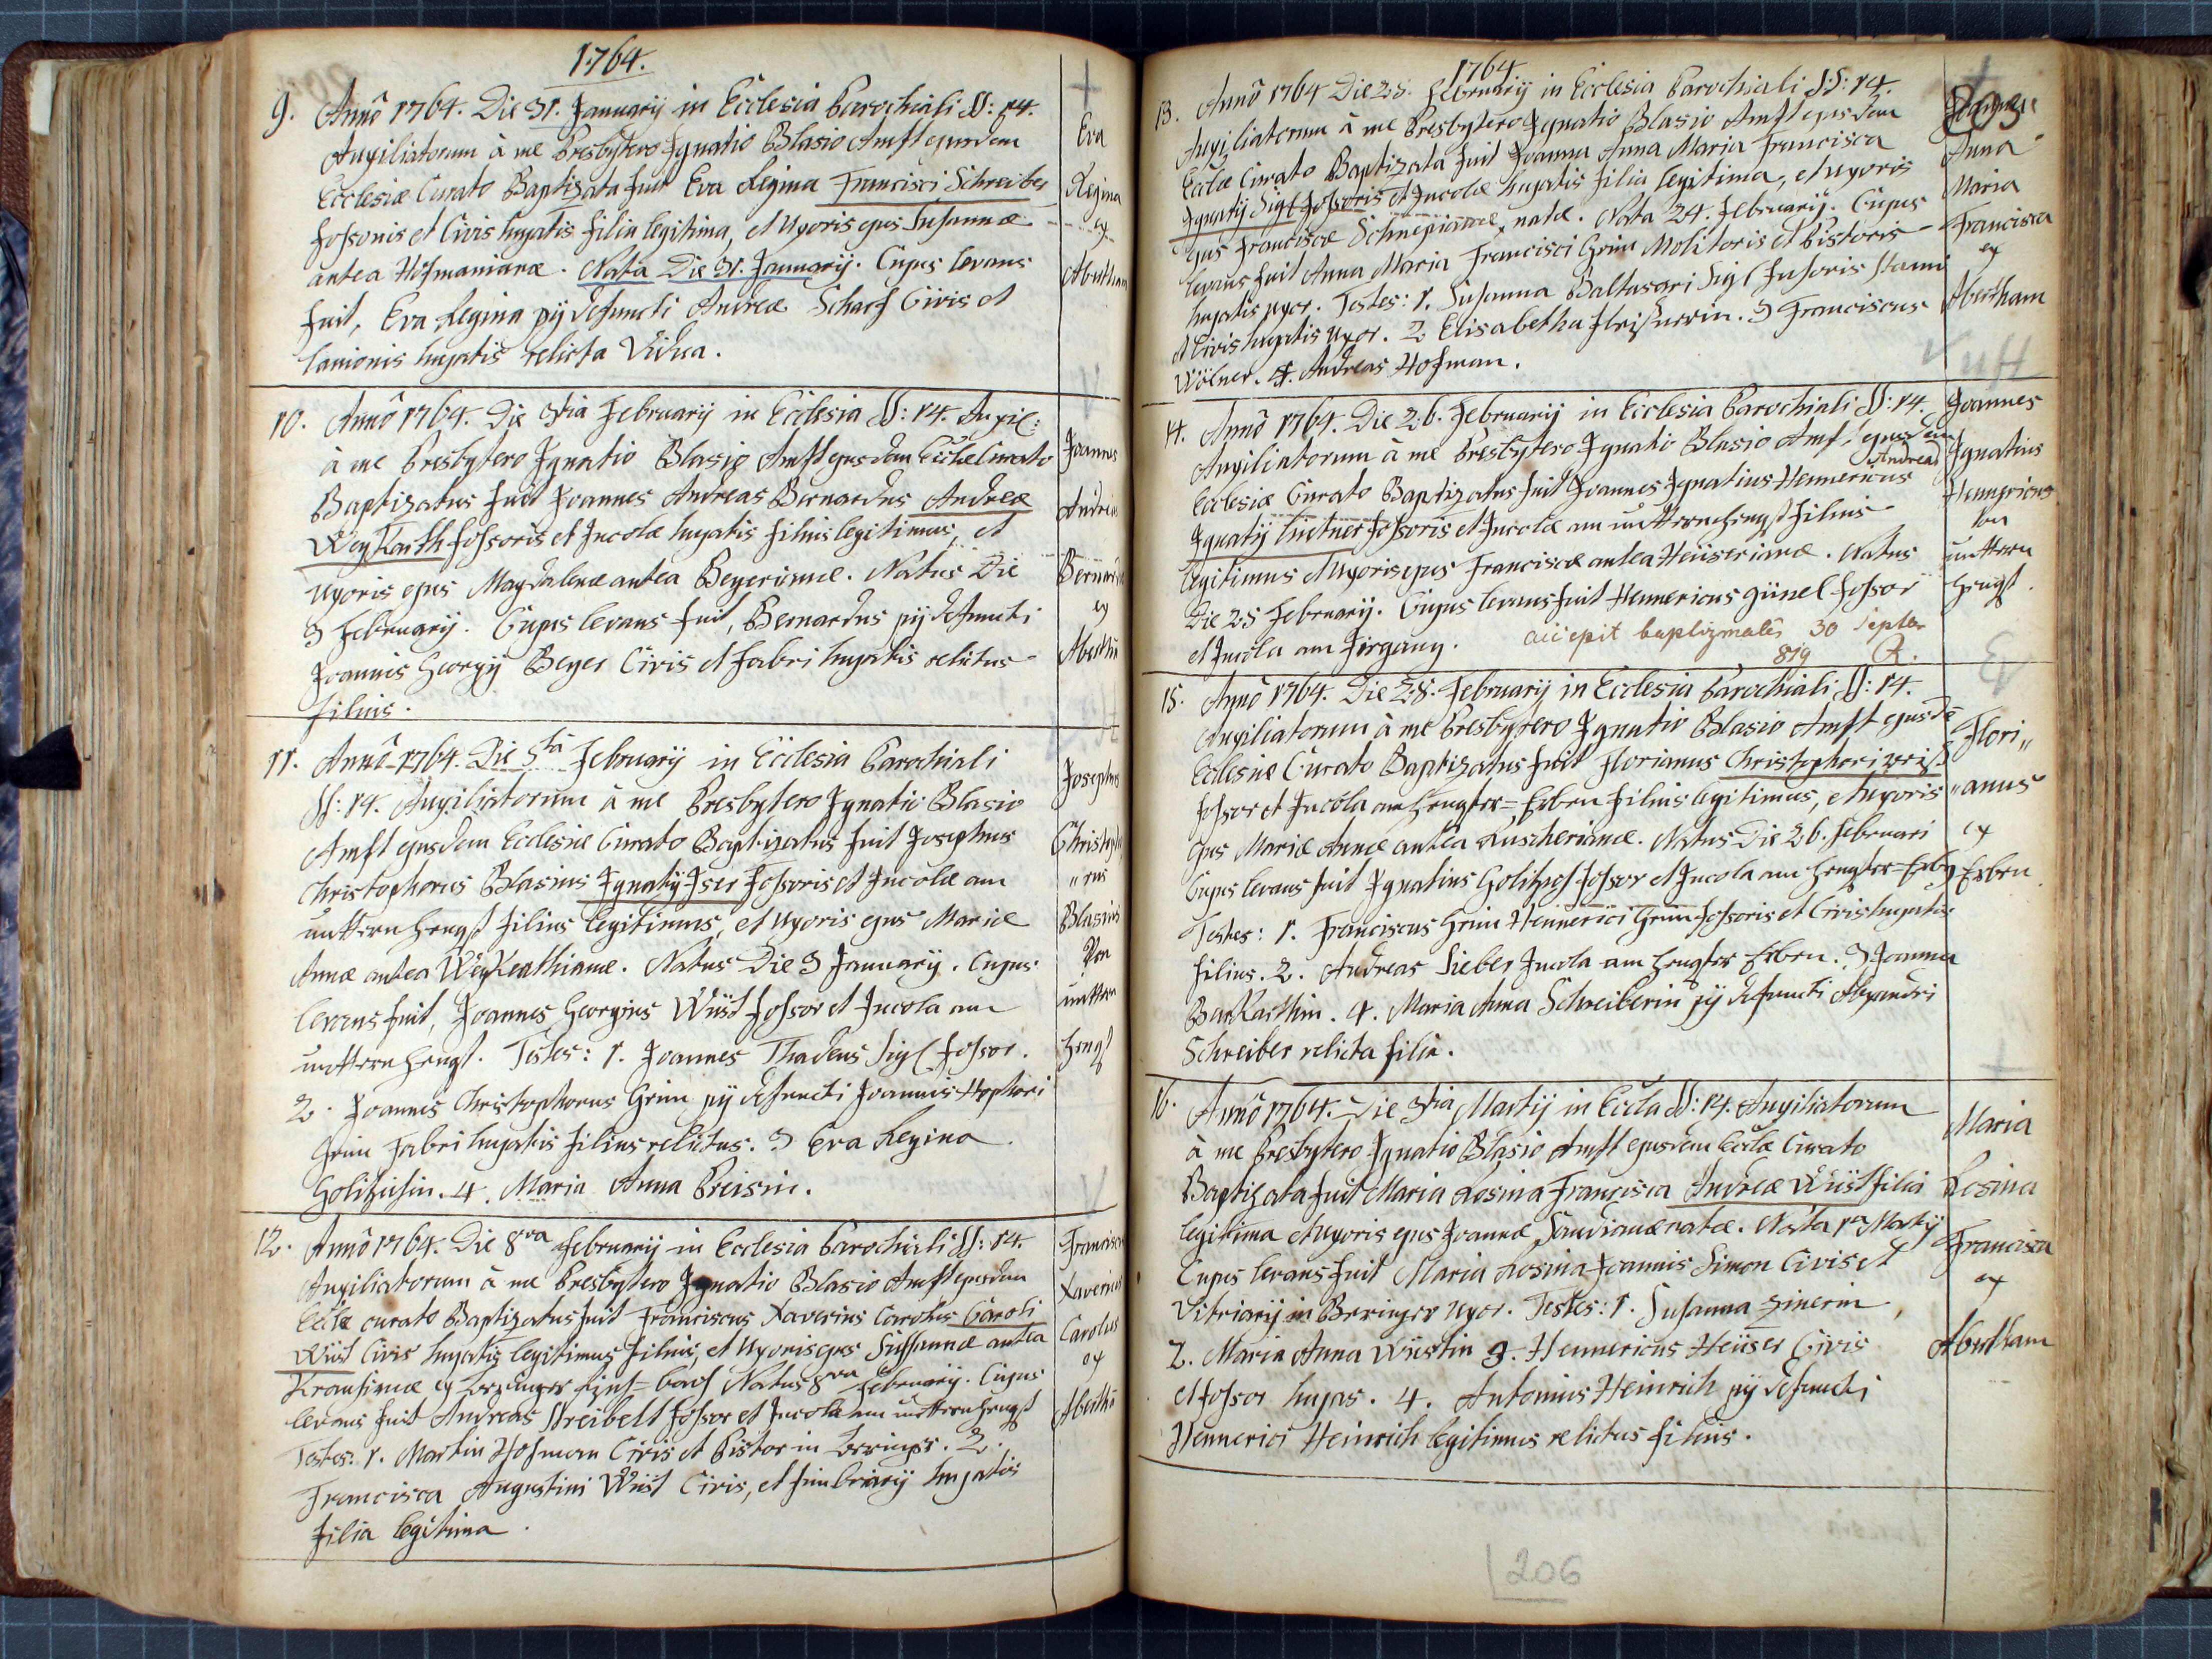 1764.
9. Anno 1764. Die 31. January in Ecclesia Parochiali SS: 14.
Auxiliatorum à me Presbytero Ignatio Blasio Amft ejusdem
Ecclesiæ Curato Baptizata fuit Eva Regina Francisci Schreiber
fossoris et Civis hujatis filia legitima, et Uxoris ejus Susannæ
antea Hofmanianæ. Nata Die 31. January. Cujus levans
fuit, Eva Regina pij defuncti Andreæ Scharf Civis et
lanionis hujatis relicta Vidua.
Eva
Regina
ex
Abertham
10. Anno 1764. Die 3tia February in Ecclesia SS: 14. Auxil:
à me Presbytero Ignatio Blasio Amft ejusdem Eccliæ Curato
Baptizatus fuit Joannes Andreas Bernardus Andreæ
Weykarth fossoris et Incolæ hujatis filius legitimus, et
Uxoris ejus Magdalenæ antea Beyerianæ. Natus Die
3 February. Cujus levans fuit, Bernardus pij defuncti
Joannis Georgij Beyer Civis et fabri hujatis relictus
filius.
Joannes
Andreas
Bernardus
ex
Aberthā
11. Anno 1764. Die 5ta February in Ecclesia Parochiali
SS: 14. Auxiliatorum à me Presbytero Ignatio Blasio
Amft ejusdem Ecclesiæ Curato Baptizatus fuit Josephus
Christophorus Blasius Ignatij Iser fossoris et Incolæ am
unttern hengst filius legitimus, et Uxoris ejus Mariæ
Annæ antea Weykarthianæ. Natus Die 3 January. Cujus
levans fuit, Joannes Georgius Wüst fossor et Incola am
unttern hengst. Testes: 1. Joannes Thadeus Sigl fossor.
2. Joannes Christophorus Grim pij defuncti Joannis
Grim Fabri hujatis filius relictus. 3 Eva Regina
4. Maria Anna Preisin.
Josephus
Christoph
"rus
Blasius
Von
unttern
hengst
12. Anno 1764. Die 8va February in Ecclesia Parochiali SS: 14.
Auxiliatorum à me Presbytero Ignatio Blasio Amft ejusdem
Eccliæ curato Baptizatus fuit Franciscus Xaverius Carolus Caroli
Wüst Civis hujatis legitimus filius, et Uxoris ejus Susannæ antea
ex Natus 8va February. Cujus
levans fuit Andreas Streibelt fossor et Incola am unttern hengst
Testes: 1. Martin Hofman Civis et Pistor in 2.
Francisca Augustini Wüst Civis, et hujatis
filia legitima.
Franciscus
Xaverius
Carolus
ex
Aberthā
1764
13. Anno 1764 Die 25. February in Ecclesia Parochiali SS: 14.
Auxiliatorum à me Presbytero Ignatio Blasio Amft ejusdem
Eccliæ Curato Baptizata fuit Joanna Anna Maria Francisca
Ignatij Sigl fossoris et Incolæ hujatis filia legitima, et Uxoris
ejus Franciscæ natæ. Nata 24. February. Cujus
levans fuit Anna Maria Francisci Grim Molitoris et Pistoris
hujatis uxor. Testes: 1. Susanna Baltasari Sigl fusoris stanni
et Civis hujatis Uxor. 2 Elisabetha 3 Franciscus
Wölner. 4. Andreas Hofman.
205
Joanna
Anna
Maria
Francisca
ex
Abertham
14. Anno 1764. Die 26. February in Ecclesia Parochiali SS: 14.
Auxiliatorum à me Presbytero Ignatio Blasio Amft ejusdem
Andreas
Ecclesiæ Curato Baptizatus fuit Joannes Ignatius Hennericus
Ignatij Lietner fossoris et Incolæ am unttern hengst filius
legitimus et Uxoris ejus Franciscæ antea Heüserianæ. Natus
Die 25 February. Cujus levans fuit Hennericus Günel fossor
et Incola am Irrgang. accepit baptizmales 30 Septbr
819 R.
Joannes
Ignatius
Hennricus
von
unttern
hengst.
15. Anno 1764. Die 28. February in Ecclesia Parochiali SS: 14.
Auxiliatorum à me Presbytero Ignatio Blasio Amft ejusdē
Ecclesiæ Curato Baptizatus fuit Florianus Christophori
fossor et Incola am hengster = Erben filius legitimus, et Uxoris
ejus Mariæ Annæ antea Luscherianæ. Natus Die 26. Februari
Cujus levans fuit Ignatius fossor et Incola am hengster = Erben
Testes: 1. Franciscus Grim Hennerici Grim fossoris et Civis hujatis
filius. 2. Andreas Sieber Incola am hengster Erben. 3 Joanna
Barkarthin. 4. Maria Anna Schreiberin pij defuncti Alexandri
Schreiber relicta filia.
Flori"
"anus
ex
Erben
16. Anno 1764. Die 3tia Martij in Eccla SS: 14. Auxiliatorum
à me Presbytero Ignatio Blasio Amft ejusdem Eccliæ Curato
Baptizata fuit Maria Rosina Francisca Andreæ Wüst filia
legitima et Uxoris ejus Joannæ natæ. Nata 1ma Martij
Cujus levans fuit Maria Rosina Joannis Simon Civis et
Vitriarij in Beringer Uxor. Testes: 1. Susanna Zinerin
2. Maria Anna Wüstin 3. Hennericus Heüser Civis
et fossor hujas. 4. Antonius Heinrich pij defuncti
Hennerici Heinrich legitimus relictus filius.
Maria
Rosina
Francisca
ex
Abertham
206